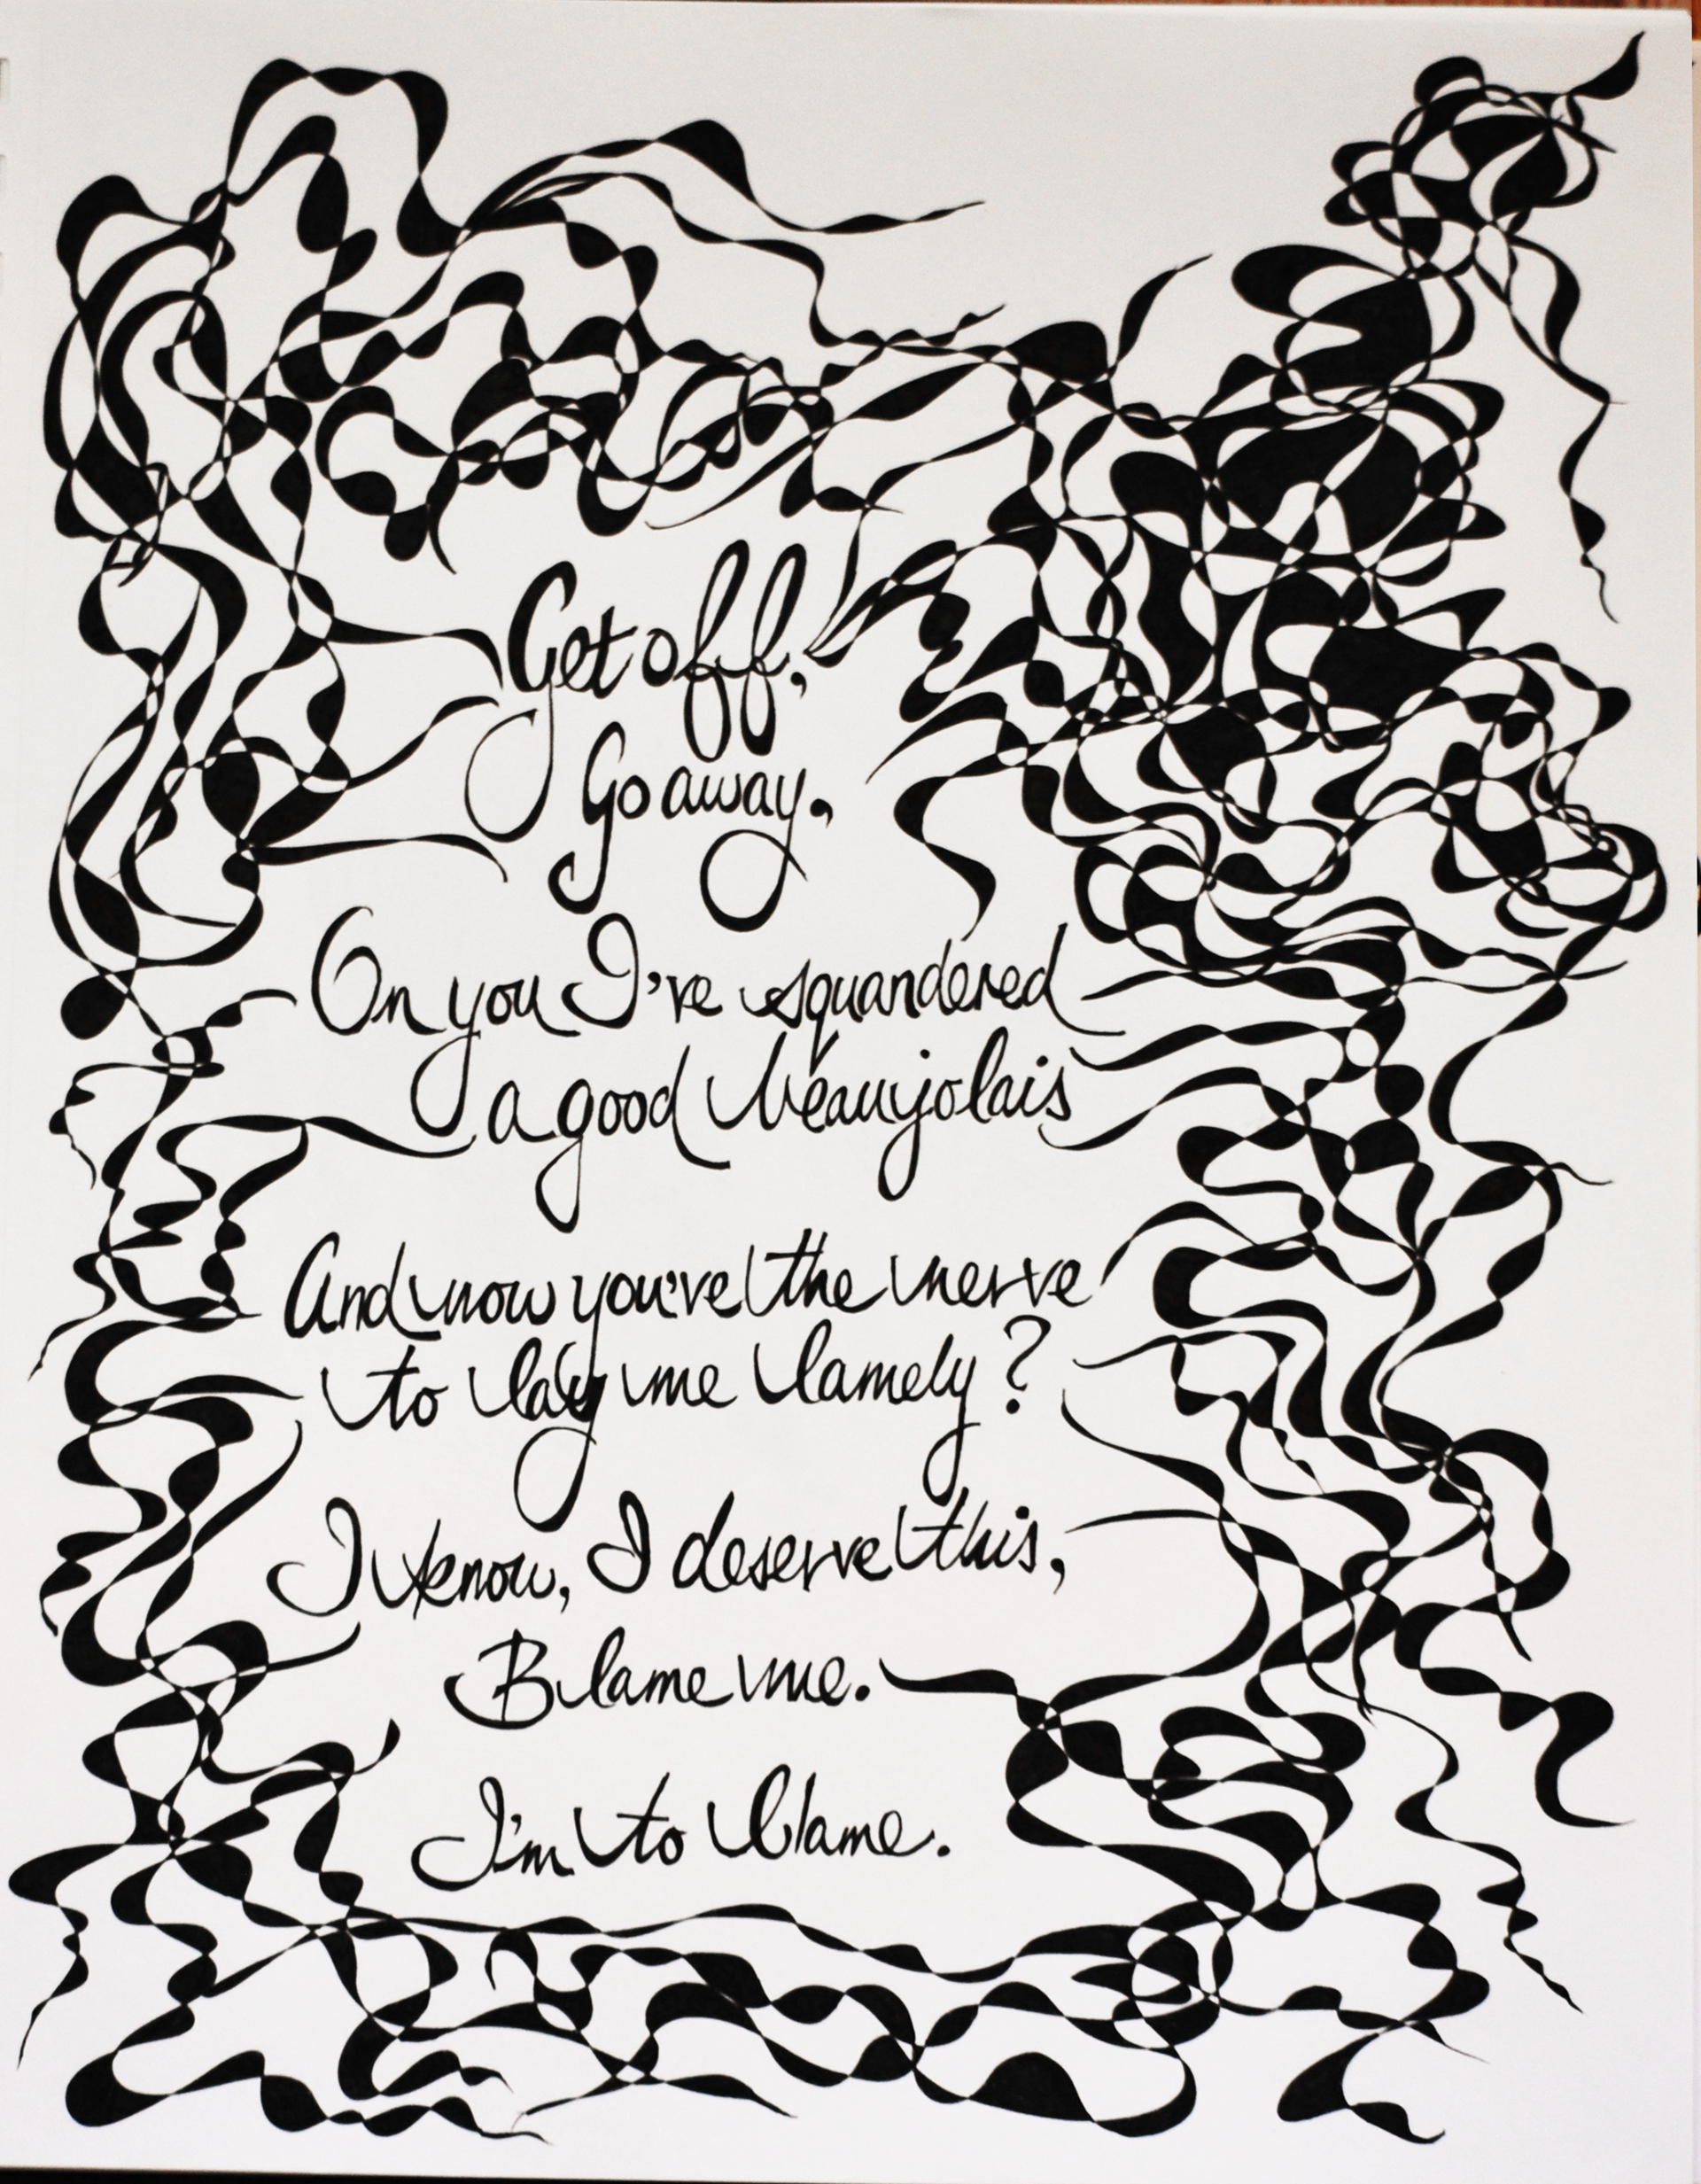 Get off,
Go away,
On you I've squandered
a good beaujolais
And now you've the nerve
to lay me lamely?
I know, I deserve this,
Blame me.
I'm to blame.